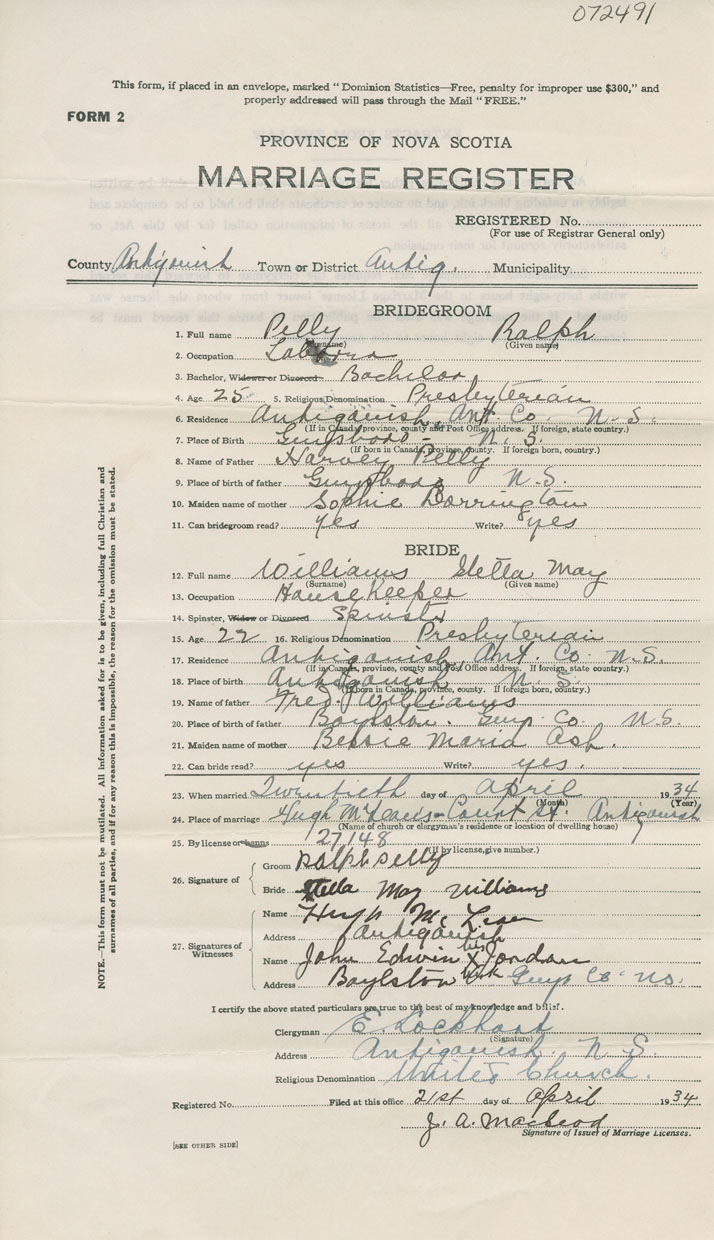 072491
This form, if placed in an envelope, marked "Dominion Statistics—Free, penalty for improper use $300," and
properly addressed will pass through the Mail "FREE."
FORM 2
PROVINCE OF NOVA SCOTIA
MARRIAGE REGISTER
REGISTERED No.
(For use of Registrar General only)
County Antigonish Town or District Antig. Municipality
BRIDEGROOM
1. Full name Pelly Ralph
(Surname) (Given name)
2. Occupation
3. Bachelor, Widower or Divorced Bachelor
4. Age 25 5. Religious Denomination Presbyterian
6. Residence Antigonish, Ant. Co. N.S.
(If in Canada, province, county and Post Office address. If foreign, state country.)
7. Place of Birth Guysboro - N.S.
(If born in Canada, province, county. If foreign born, country.)
8. Name of Father Harvey Pelly
9. Place of birth of father Guysboro N.S.
10. Maiden name of mother Sophie Dorrington
11. Can bridegroom read? yes Write? yes
BRIDE
12. Full name Williams Stella May
(Surname) (Given name)
13. Occupation Housekeeper
14. Spinster, Widow or Divorced Spinster
15. Age 22 16. Religious Denomination Presbyterian
17. Residence Antigonish, Ant. Co. N.S.
(If in Canada, province, county and Post Office address. If foreign, state country.)
18. Place of birth Antigonish N.S.
(If born in Canada, province, county. If foreign born, country.)
19. Name of father Fred. J Williams
20. Place of birth of father Boylston. Guys. Co N.S.
21. Maiden name of mother Bessie Maria Ash.
22. Can bride read? yes Write? yes.
23. When married Twentieth day of April 1934
(Month) (Year)
24. Place of marriage Hugh McLean's - Court St. Antigonish
(Name of church or clergyman's residence or location of dwelling house)
25. By license or banns 27148
(If by license, give number.)
26. Signature of
Groom Ralph Pelly
Bride Stella May Williams
27. Signatures of Witnesses
Name Hugh McLean
Address Antigonish
Name John Edwin his X mark Jordan
Address Boylston Guys Co. N.S.
I certify the above stated particulars are true to the best of my knowledge and belief.
Clergyman E. Lockhart
(Signature)
Address Antigonish. N.S.
Religious Denomination United Church.
Registered No. Filed at this office 21st day of April 1934
J. A. Macleod
Signature of Issuer of Marriage Licenses.
[SEE OTHER SIDE]
NOTE.—This form must not be mutilated. All information asked for is to be given, including full Christian and
surnames of all parties, and if for any reason this is impossible, the reason for the omission must be stated.